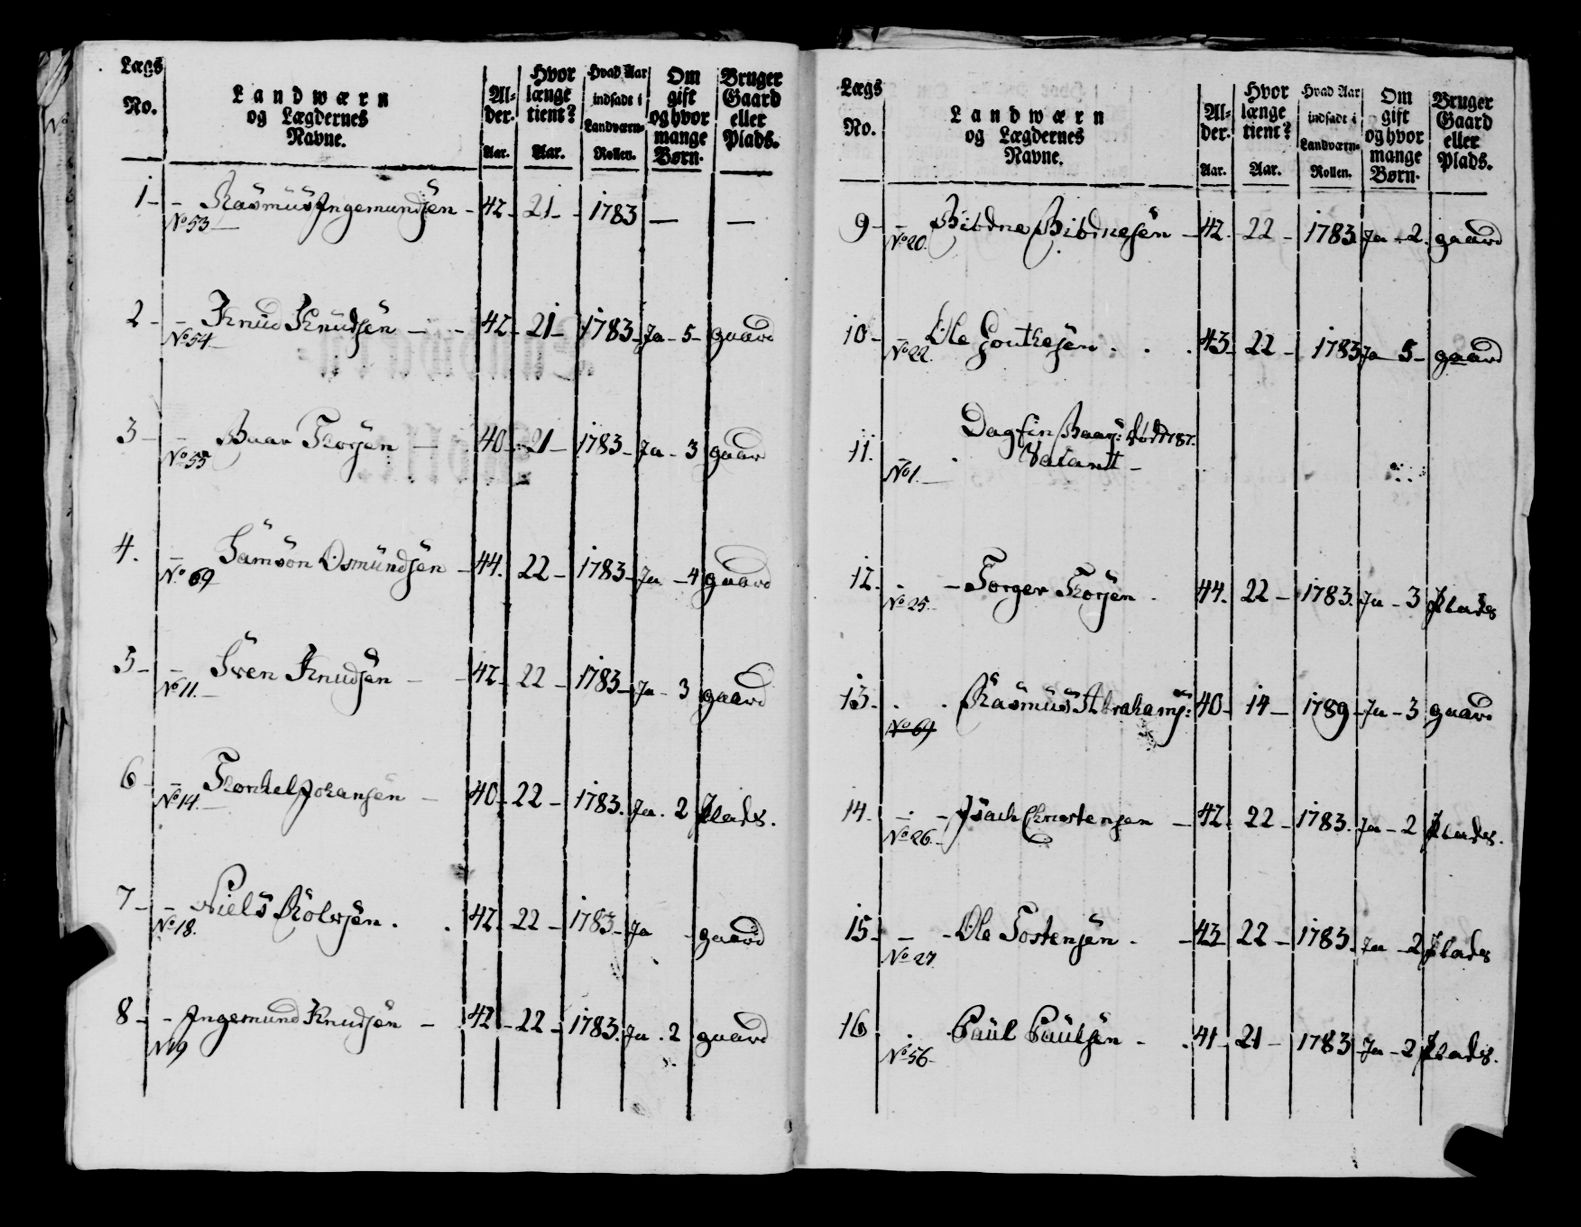 Lægs No. Landwærn og Lægdernes Navne. Al- der. Aar. Hvor længe tient? Aar. Hvad Aar indsadt i Landværn- Rollen. Om gift og hvor mange Børn. Bruger Gaard eller Plads.
1 - - Rasmus Ingemundsen - 42 - 21 - - 1783 — —
No 53
2 - - Knud Knudsen - - 42 - 21 - 1783 - Ja - 5 - gaard
No 54
3 - - Baar Torsen - 40 - 21 - 1783 - Ja - 3 gaar
No 55
4. - Samson Osmundsen - 44. 22 - 1783 - Ja - 4 gaard
No 69
5 - - Sven Knudsen - - 42 - 22 - 1783 - Ja - 3 gaard
No 11.
6 - - Torkel Johansen - 40 - 22 - 1783. Ja. 2 plads.
No 14.
7 - - Niels Rolvsen . . 42 - 22 - 1783 - Ja - gaard
No 18.
8 - - Ingemund Knudsen - 42 - 22 - 1783. Ja. 2 gaard
N 19
Lægs No. Landwærn og Lægdernes Navne. Al- der. Aar. Hvor længe tient? Aar. Hvad Aar indsadt i Landværn- Rollen. Aar. Om gift og hvor mange Børn. Bruger Gaard eller Plads.
9 - - - 42. 22 - 1783. Ja - 2. gaard
No 20.
10 - - Ole Goutesen . . . 43 - 22 - 1783 Ja 5 - gaard
No 22.
11. - Dagfin Baars: død 1787.
No 1. Vacant -
12. - - Torger Torsen . 44. 22 - 1783. Ja - 3 plads
No 25.
13. . . Rasmus Abrahams: 40 - 14 - 1789 - Ja - 3 gaard
No 69
14. - - Isach Christensen - 42. 22 - 1783. Ja - 2 plads.
No 26.
15 - - - Ole Tostensen - - 43 22 - 1783. Ja - 2 plads
No 27
16 - Paul Paulsen - . 41 - 21 - 1783 Ja - 2 plads.
No 56